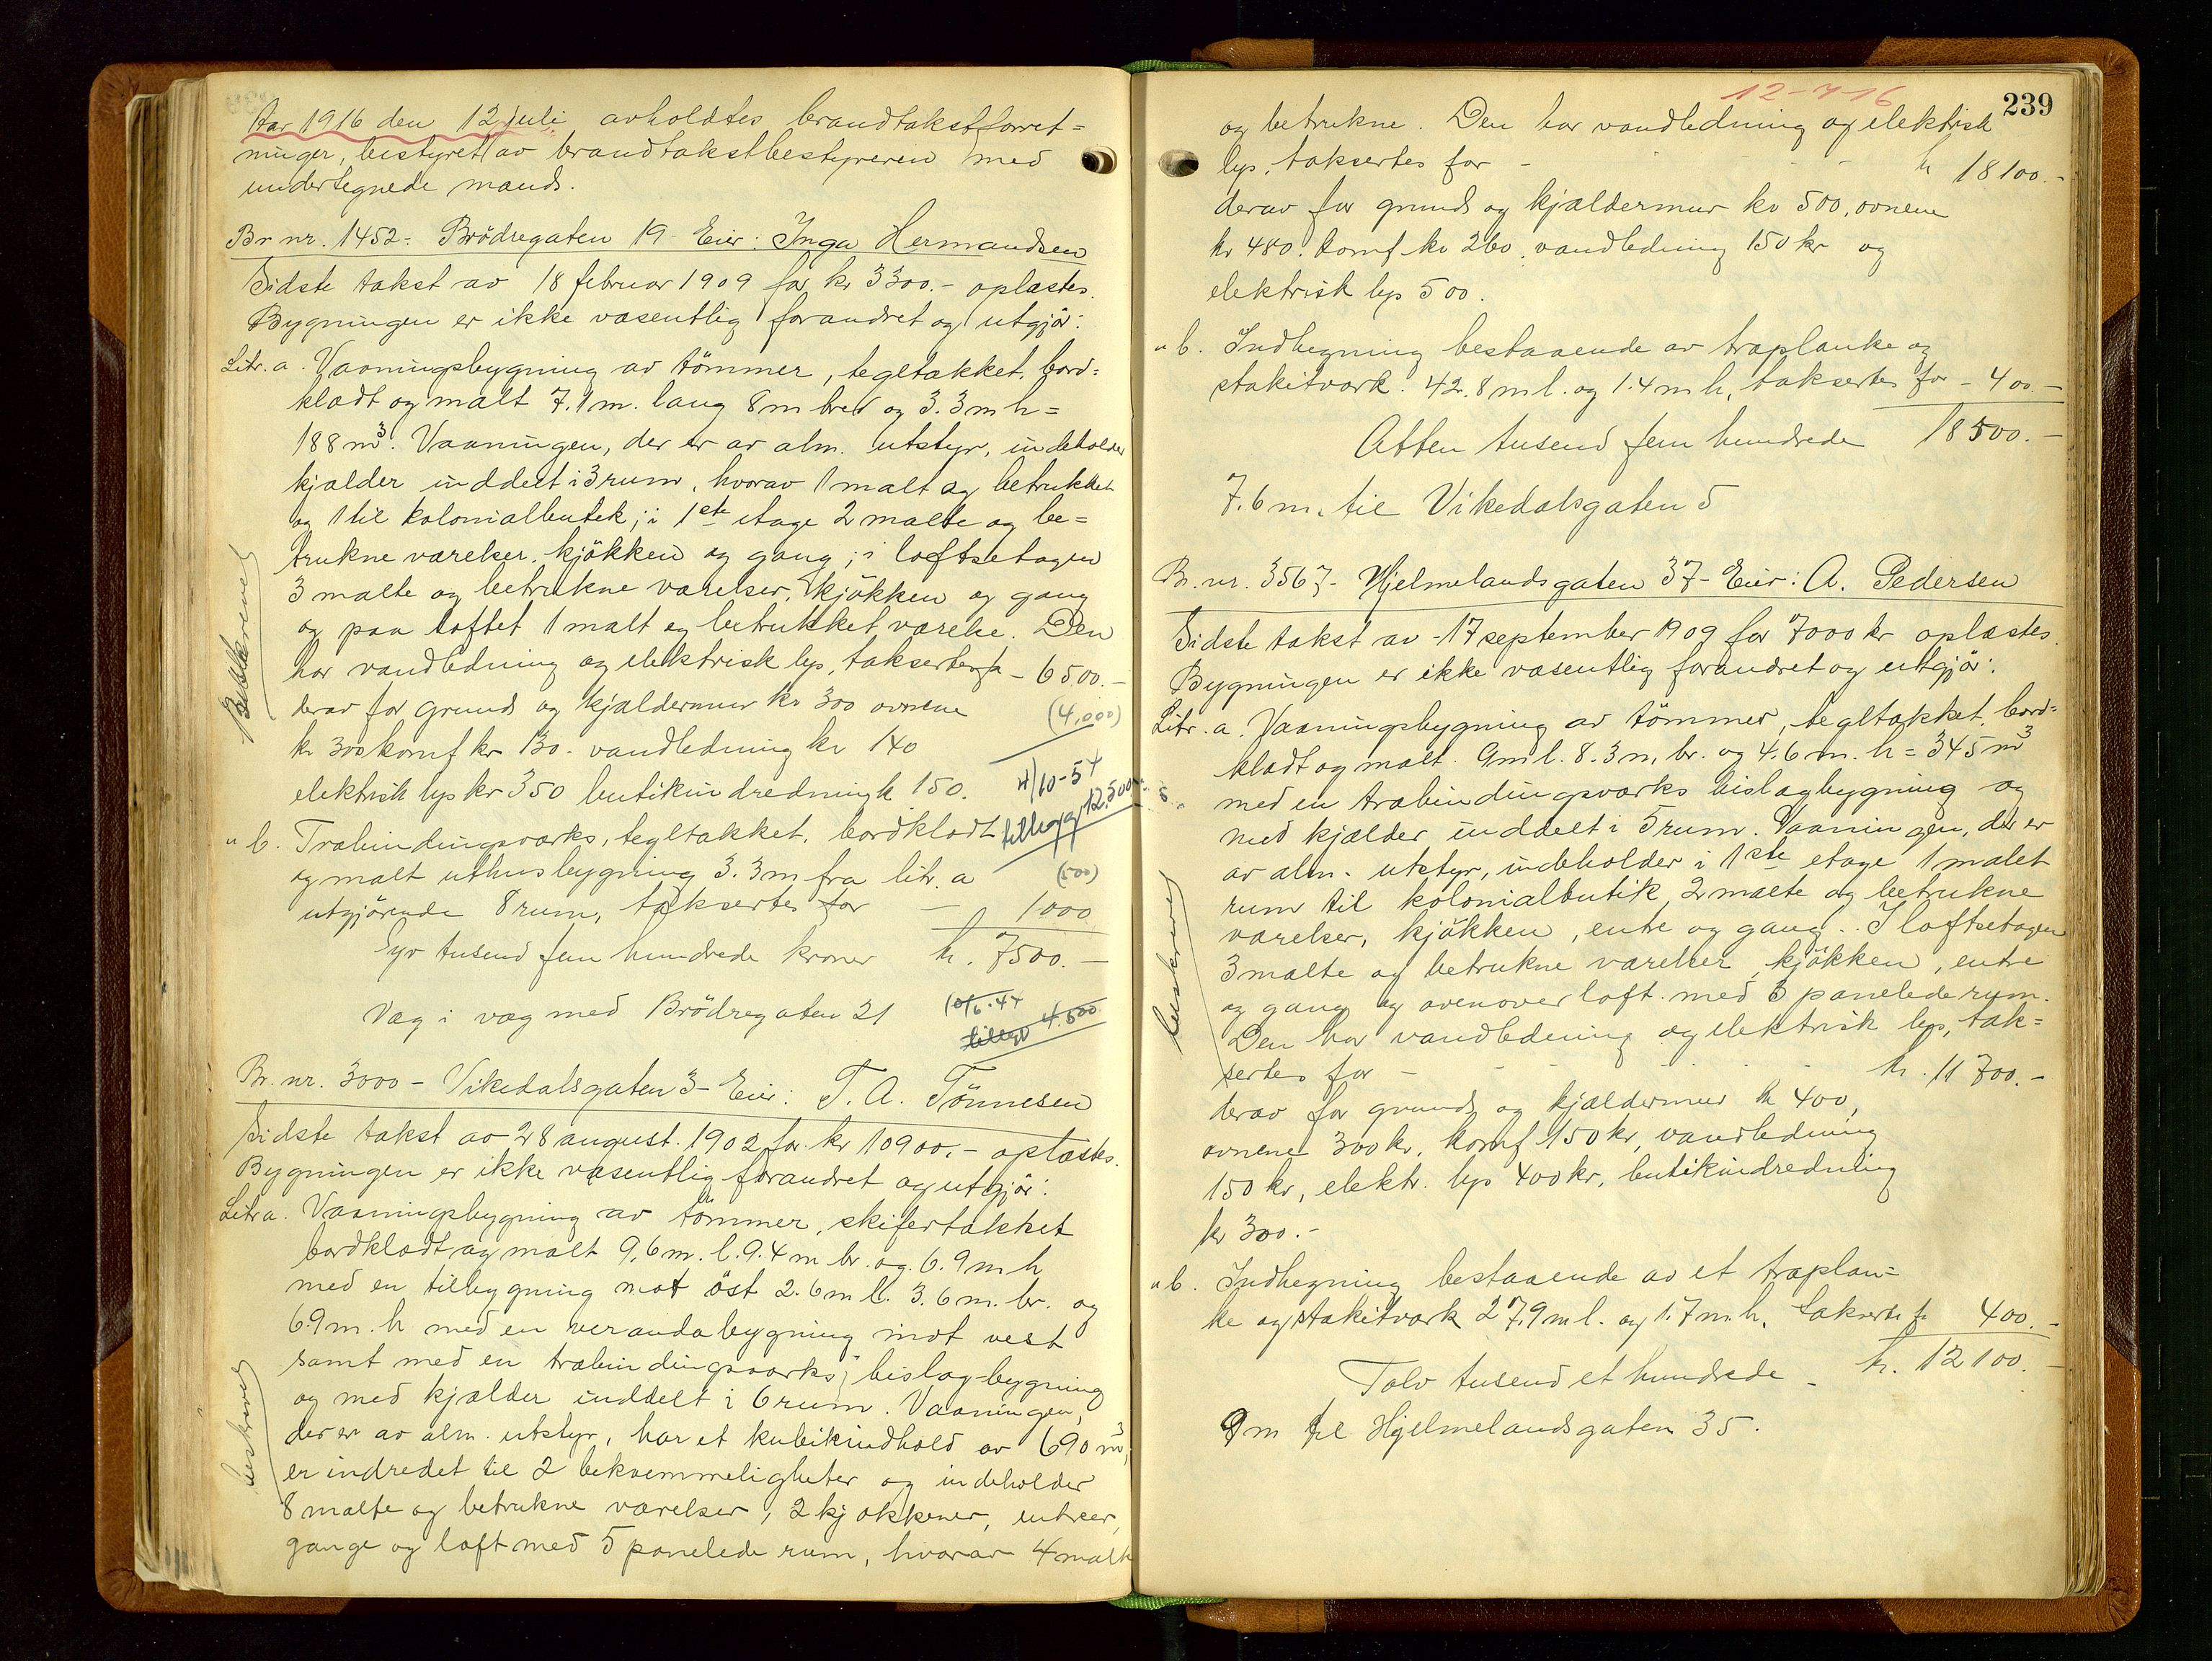 Aar 1916 den 12 juli avholdtes brandtakstforret=
ninger, bestyret av brandtakstbestyreren med
undertegnede mænd.
Br nr. 1452 - Brödregaten 19 - Eier: Inga Hermandsen
Sidste takst av 18 februar 1909 for kr 3300.- oplæstes.
Bygningen er ikke væsentlig forandret og utgjör:
Litr. a. Vaaningsbygning av tömmer, tegltækket, bord=
klædt og malt 7.1 m. lang 8 m bred og 3.3 m h =
188 m³. Vaaningen, der er av alm. utstyr, indeholder
kjælder inddelt i 3 rum, hvorav 1 malt og betrukket
og 1 til kolonialbutek; i 1ste etage 2 malte og be=
trukne værelser, kjökken og gang; i loftsetagen
3 malte og betrukne værelser, kjökken og gang
og paa loftet 1 malt og betrukket værelse. Den
har vandledning og elektrisk lys, taksertes for - 6500.-
derav for grund og kjældermur kr 300 ovnene
(4,000)
kr 300 komf kr 130 - vandledning kr 140
elektrisk lys kr 350 butikindredning k 150.
4/10-54
tillegg 12.500
" b. Træbindingsværks, tegltækket, bordklædt
og malt uthusbygning 3.3 m fra litr. a
(500)
utgjörende 8 rum, taksertes for - 1000
Syv tusend fem hundrede kroner kr. 7500.-
Væg i væg med Brödregaten 21
10/6.44
tillegg 4.500
Beskrevet
Br. nr. 3000 - Vikedalsgaten 3 - Eier: T. A. Tönnesen
Sidste takst av 28 august. 1902 for kr 10900.- oplæstes.
Bygningen er ikke væsentlig forandret og utgjör:
Litr a. Vaaningsbygning av tömmer, skifertækket
bordklædt og malt 9,6 m. l. 9.4 m br. og 6.9 m h
med en tilbygning mot öst 2.6 m l. 3.6 m. br. og
6.9 m. h med en verandabygning mot vest
samt med en træbindingsværks bislag-bygning
og med kjælder inddelt i 6 rum. Vaaningen,
der er av alm. utstyr, har et kubikindhold av 690 m³,
er indredet til 2 bekvemmeligheter og indeholder
8 malte og betrukne værelser, 2 kjøkkener, entreer,
gange og loft med 5 panelede rum, hvorav 4 malte
beskrevet
12-7-16
239
og betrukne. Den har vandledning og elektrisk
lys, taksertes for - kr 18100.-
derav for grund og kjældermur kr 500, ovnene
kr 480. komf kr 260, vandledning 150 kr og
elektrisk lys 500.
" b. Indhegning bestaaende av træplanke og
stakitværk. 42.8 m l. og 1.4 m h, taksertes for - 400.-
Atten tusend fem hundrede 18500.-
7.6 m. til Vikedalsgaten 5
Br. nr. 3567 - Hjelmelandsgaten 37 - Eier: A. Pedersen
Sidste takst av - 17 september 1909 for 7000 kr oplæstes.
Bygningen er ikke væsentlig forandret og utgjör:
Litr. a. Vaaningsbygning av tömmer, tegltækket, bord=
klædt og malt. 9 m l. 8.3 m. br. og 4.6 m. h = 345 m³
med en træbindingsværks bislagbygning og
med kjælder inddelt i 5 rum. Vaaningen, der er
av alm. utstyr, indeholder i 1ste etage 1 malet
rum til kolonialbutik, 2 malte og betrukne
værelser, kjökken, entre og gang. I loftsetagen
3 malte og betrukne værelser, kjökken, entre
og gang og ovenover loft med 3 panelede rum.
Den har vandledning og elektrisk lys, tak=
sertes for - kr. 11700.-
derav for grund og kjældermur kr 400,
ovnene 300 kr, komf 150 kr, vandledning
150 kr, elektr. lys 400 kr, butikindredning
kr 300.-
" b. Indhegning bestaaende av et træplan=
ke og stakitværk 27,9 m l. og 1.7 m. h, taksertes for 400.-
Tolv tusend et hundrede - kr. 12100.-
9 m til Hjelmelandsgaten 35.
beskrevet